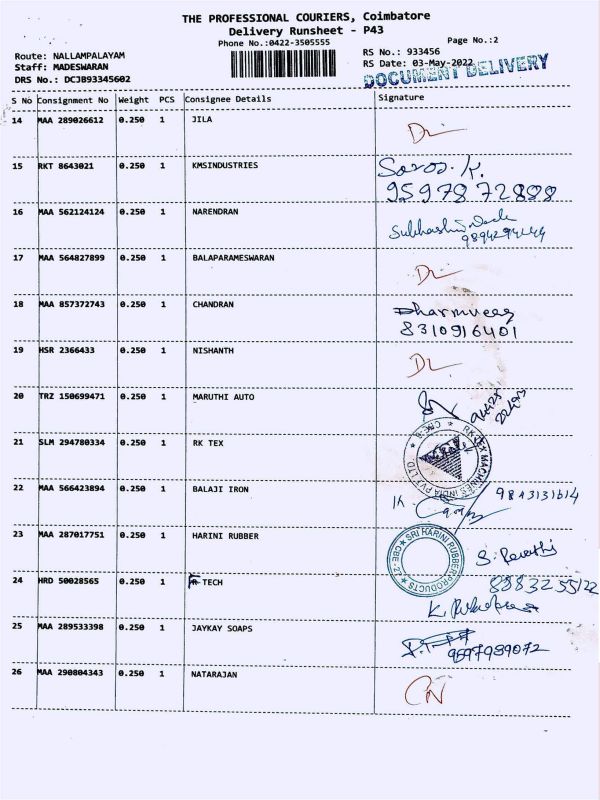 THE PROFESSIONAL COURIERS, Coimbatore
Delivery Runsheet - P43
Phone No.:0422-3505555
Page No.:2
Route: NALLAMPALAYAM
RS No.: 933456
Staff: MADESWARAN
RS Date: 03-May-2022
DRS No.: DCJB93345602
DOCUMENT DELIVERY
S No Consignment No Weight PCS Consignee Details Signature
14 MAA 289026612 0.250 1 JILA
15 RKT 8643021 0.250 1 KMSINDUSTRIES
9597872888
16 MAA 562124124 0.250 1 NARENDRAN
17 MAA 564827899 0.250 1 BALAPARAMESWARAN
18 MAA 857372743 0.250 1 CHANDRAN Dharmveer
8310916401
19 HSR 2366433 0.250 1 NISHANTH
20 TRZ 150699471 0.250 1 MARUTHI AUTO
21 SLM 294780334 0.250 1 RK TEX
RK TEX MACHINES INDIA PVT LTD. CBE-8
22 MAA 566423894 0.250 1 BALAJI IRON
23 MAA 287017751 0.250 1 HARINI RUBBER
SRI HARINI RUBBER PRODUCTS CBE-27
24 HRD 50028565 0.250 1 TECH
25 MAA 289533398 0.250 1 JAYKAY SOAPS
9597989072
26 MAA 290804343 0.250 1 NATARAJAN CN